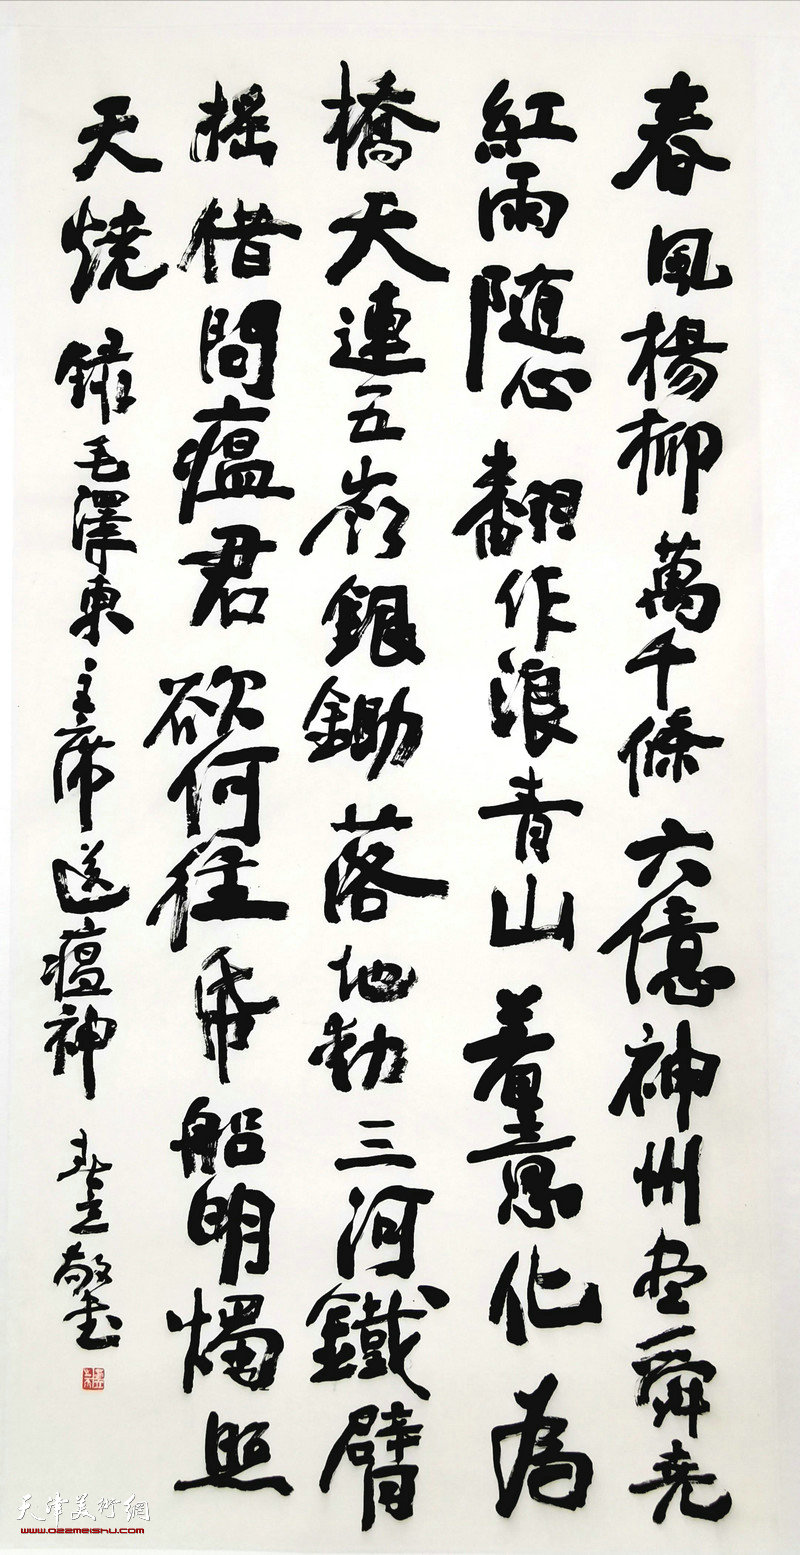 春風楊柳萬千條六億神州盡舜堯
紅雨随心翻作浪青山着意化為
橋天連五嶺銀鋤落地動三河鐵臂
摇借問瘟君欲何往帋船明燭照
天燒 録毛澤東主席送瘟神 春立敬書
天津美術網
www.022meishu.com